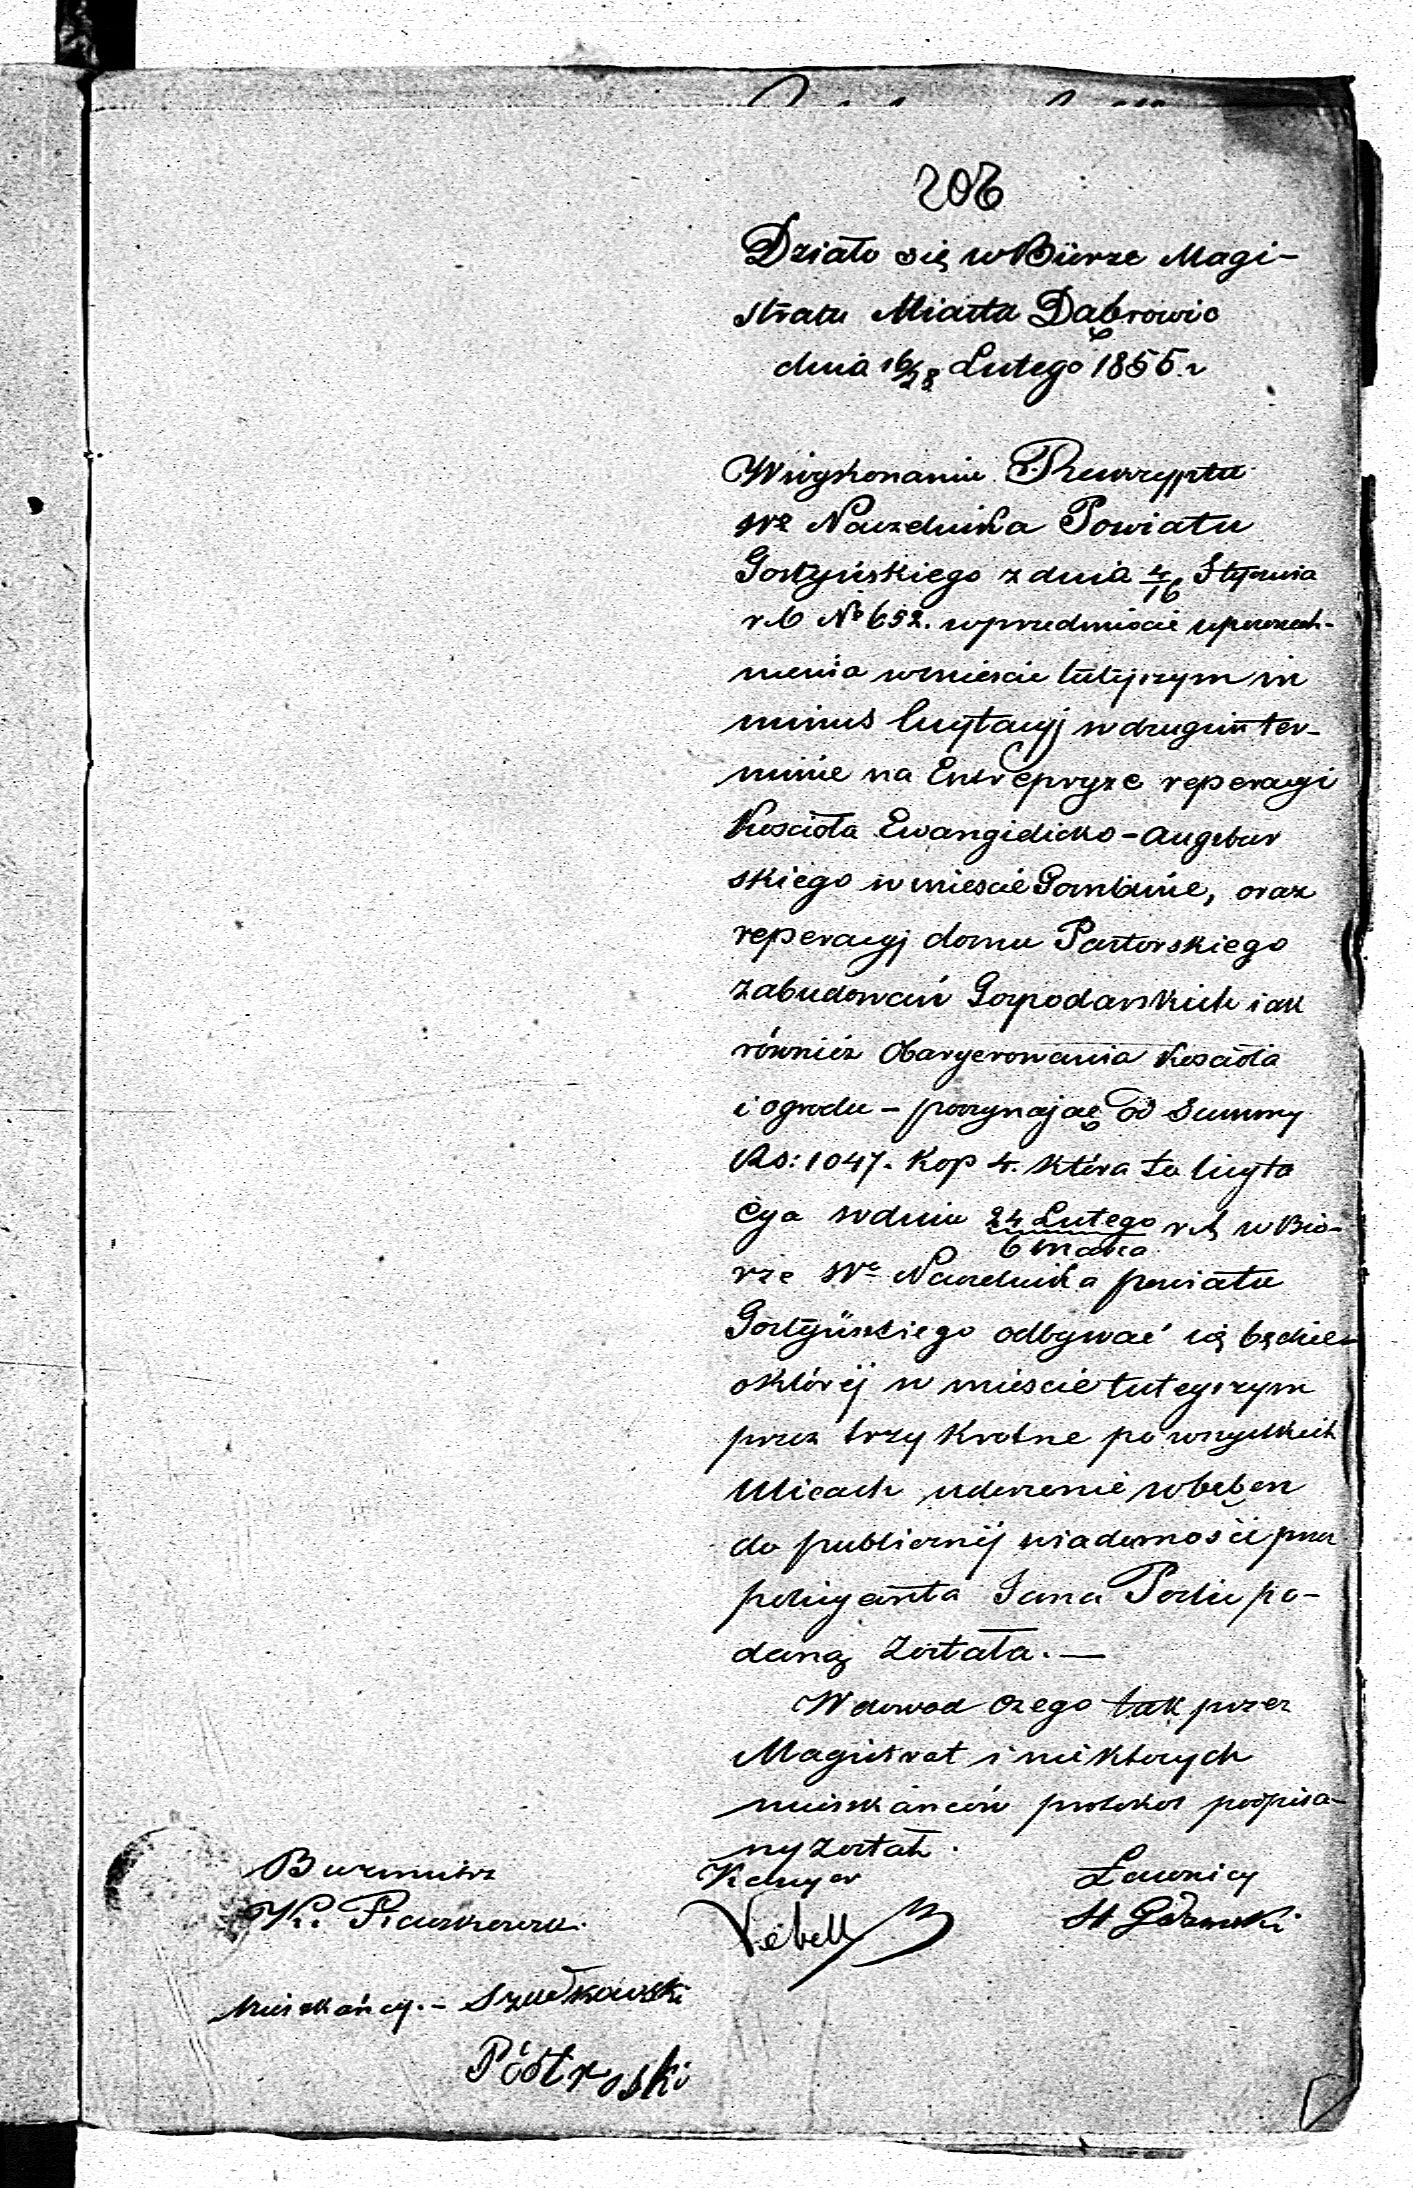 206
Działo się w Biurze Magi-
stratu Miasta Dąbrowic
dnia 16/28 Lutego 1855 r
Wwykonaniu Reskryptu
We Naczelnika Powiatu
Gostyńskiego z dnia 4/16 Stycznia
r.b No 652. wprzedmiocie upowszech-
nienia wmieście tutejszym in
minus licytacyj w drugim ter-
minie na Entrepryze reperacyi
Kościoła Ewangielicko-Augsbur
skiego w mieście Gombinie, oraz
reperacyj domu Pastorskiego
zabudowań Gospodarskich iak
również Obaryerowania Kościoła
i ogrodu - poczynając od Summy
Rs: 1047. Kop 4. która to licyta
cya wdniu 24 Lutego/6 Marca r.b w Biu-
rze We Naczelnika powiatu
Gostyńskiego odbywać się będzie
o której w mieście tutejszym
przez trzy krotne po wszystkich
Ulicach uderzenie w bęben
do publicznej wiadomości przez
policyanta Jana Podu po-
daną została. —
W dowod czego tak przez
Magistrat i niektorych
mieszkańców protokół podpisa-
ny został.
Burmistrz Kassyer Ławnicy
Vebell
Mieszkańcy. - Szudkowski
Piotrowski